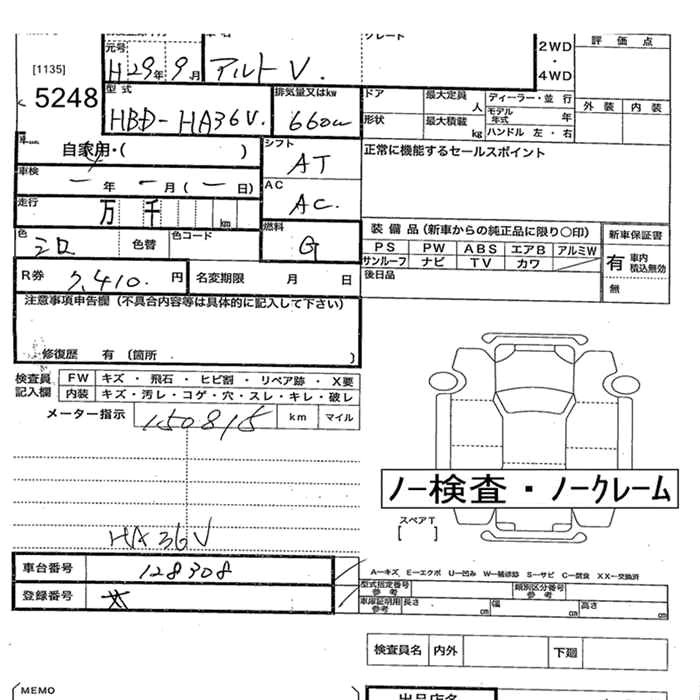 元号 車名 グレード
H29年9月 アルトV.
[1135]
5248
型式 排気量又はkw
HBD-HA36V. 660cc
ドア 最大定員 人 ディーラー・並行
形状 最大積載 kg モデル年式 年
ハンドル 左・右
2WD
・
4WD
評価点
外装 内装
自家用・( )
シフト
AT
正常に機能するセールスポイント
車検
ー年ー月(ー日)
AC
AC.
走行
万 千 km
燃料
G
色 シロ 色替 色コード
装備品(新車からの純正品に限り〇印)
PS PW ABS エアB アルミW
サンルーフ ナビ TV カワ
後日品
新車保証書
有 車内積込無効
無
R券 7,410.円 名変期限 月 日
注意事項申告欄(不具合内容等は具体的に記入して下さい)
修復歴 有 〔箇所 〕
検査員記入欄
FW キズ・飛石・ヒビ割・リペア跡・X要
内装 キズ・汚レ・コゲ・穴・スレ・キレ・破レ
メーター指示 150815 km マイル
ノー検査・ノークレーム
スペアT
[ ]
HA36V
車台番号 128308
登録番号
A―キズ E―エクボ U―凹み W―補修跡 S―サビ C―腐食 XX―交換済
型式指定番号 参考 類別区分番号 参考
車庫証明用 参考 長さ cm 幅 cm 高さ cm
検査員名 内外 下廻
MEMO
出品店名